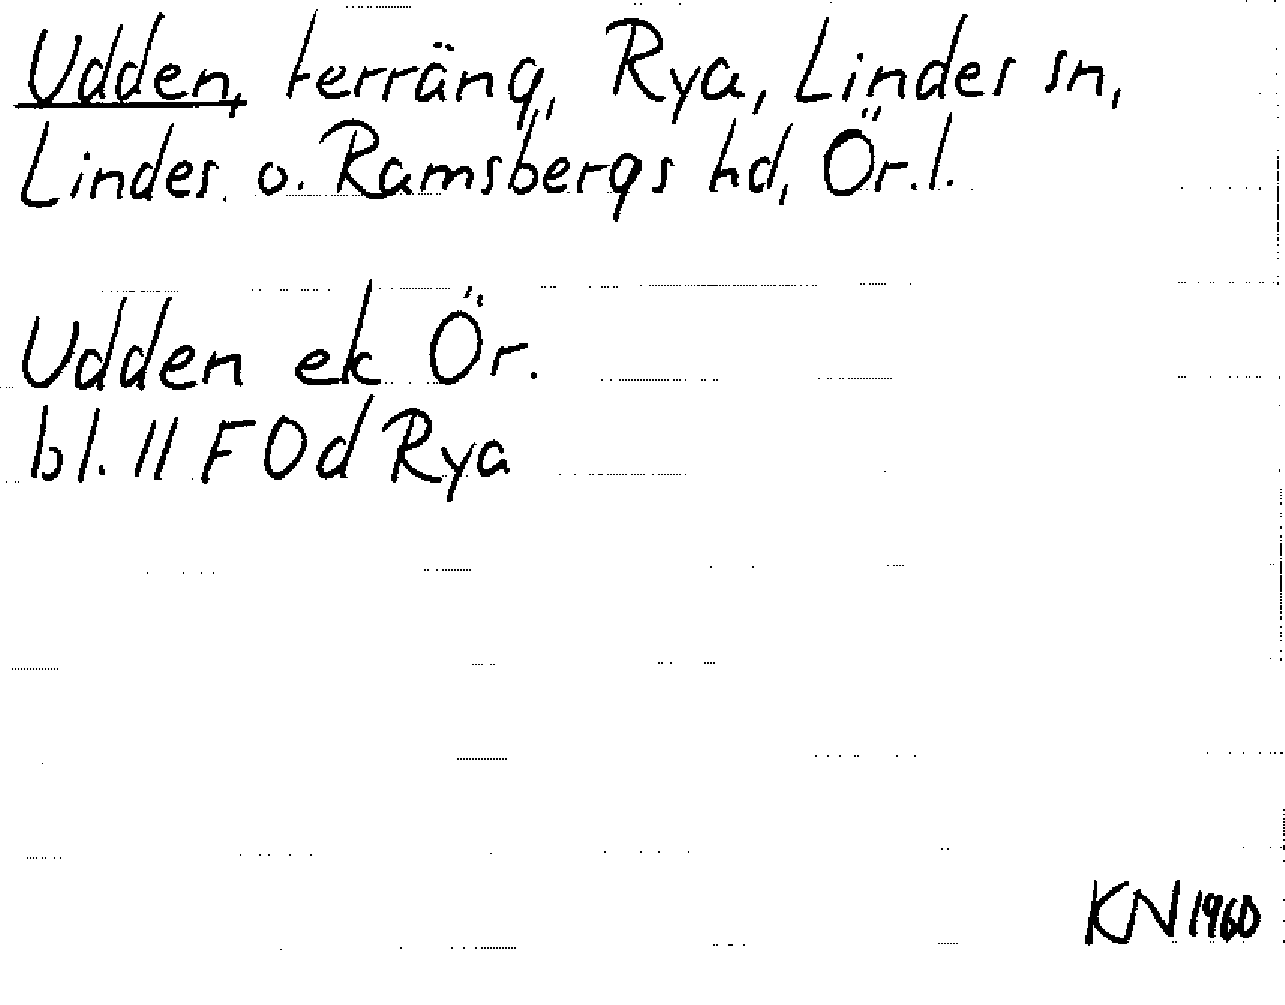 Udden, terräng, Rya, Lindes sn,
Lindes. o. Ramsbergs hd, Ör. l.
Udden ek Ör.
bl. 11 F 0d Rya
KN 1960